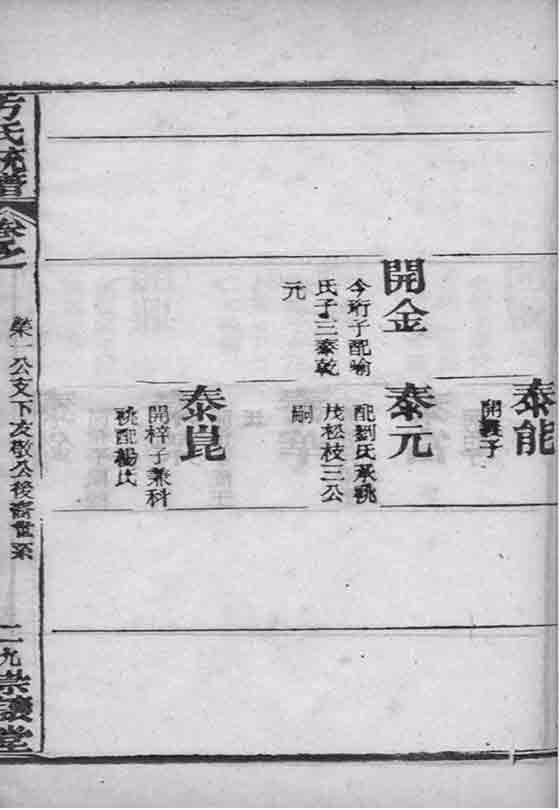 開金
今珩子配喻
氏子三泰乾
元
泰能
開子
泰元
配劉氏承祧
茂松枝三公
嗣
泰崑
開梓子兼科
祧配楊氏
方氏統譜
卷之一
榮一公支下友敬公後齊世系
二九
崇讓堂